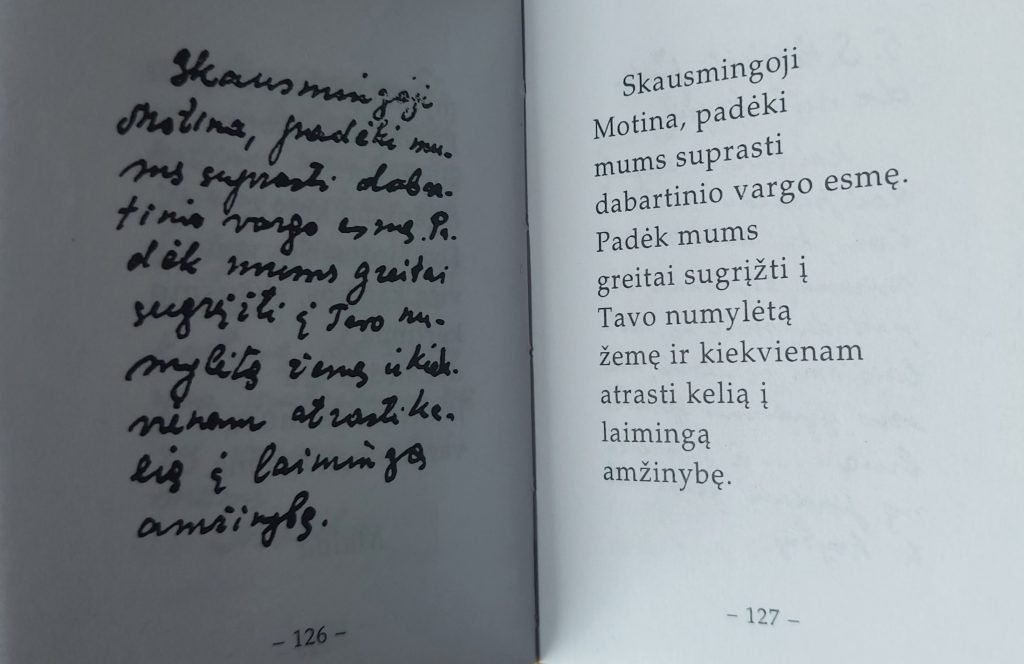 Skausmingoji
Motina, padėki mu-
ms suprasti dabar-
tinio vargo esmę. Pa-
dėk mums greitai
sugrįžti į Tavo nu-
mylėtą žemę ir kiek-
vienam atrasti ke-
lią į laimingą
amžinybę.
– 126 –
Skausmingoji
Motina, padėki
mums suprasti
dabartinio vargo esmę.
Padėk mums
greitai sugrįžti į
Tavo numylėtą
žemę ir kiekvienam
atrasti kelią į
laimingą
amžinybę.
– 127 –